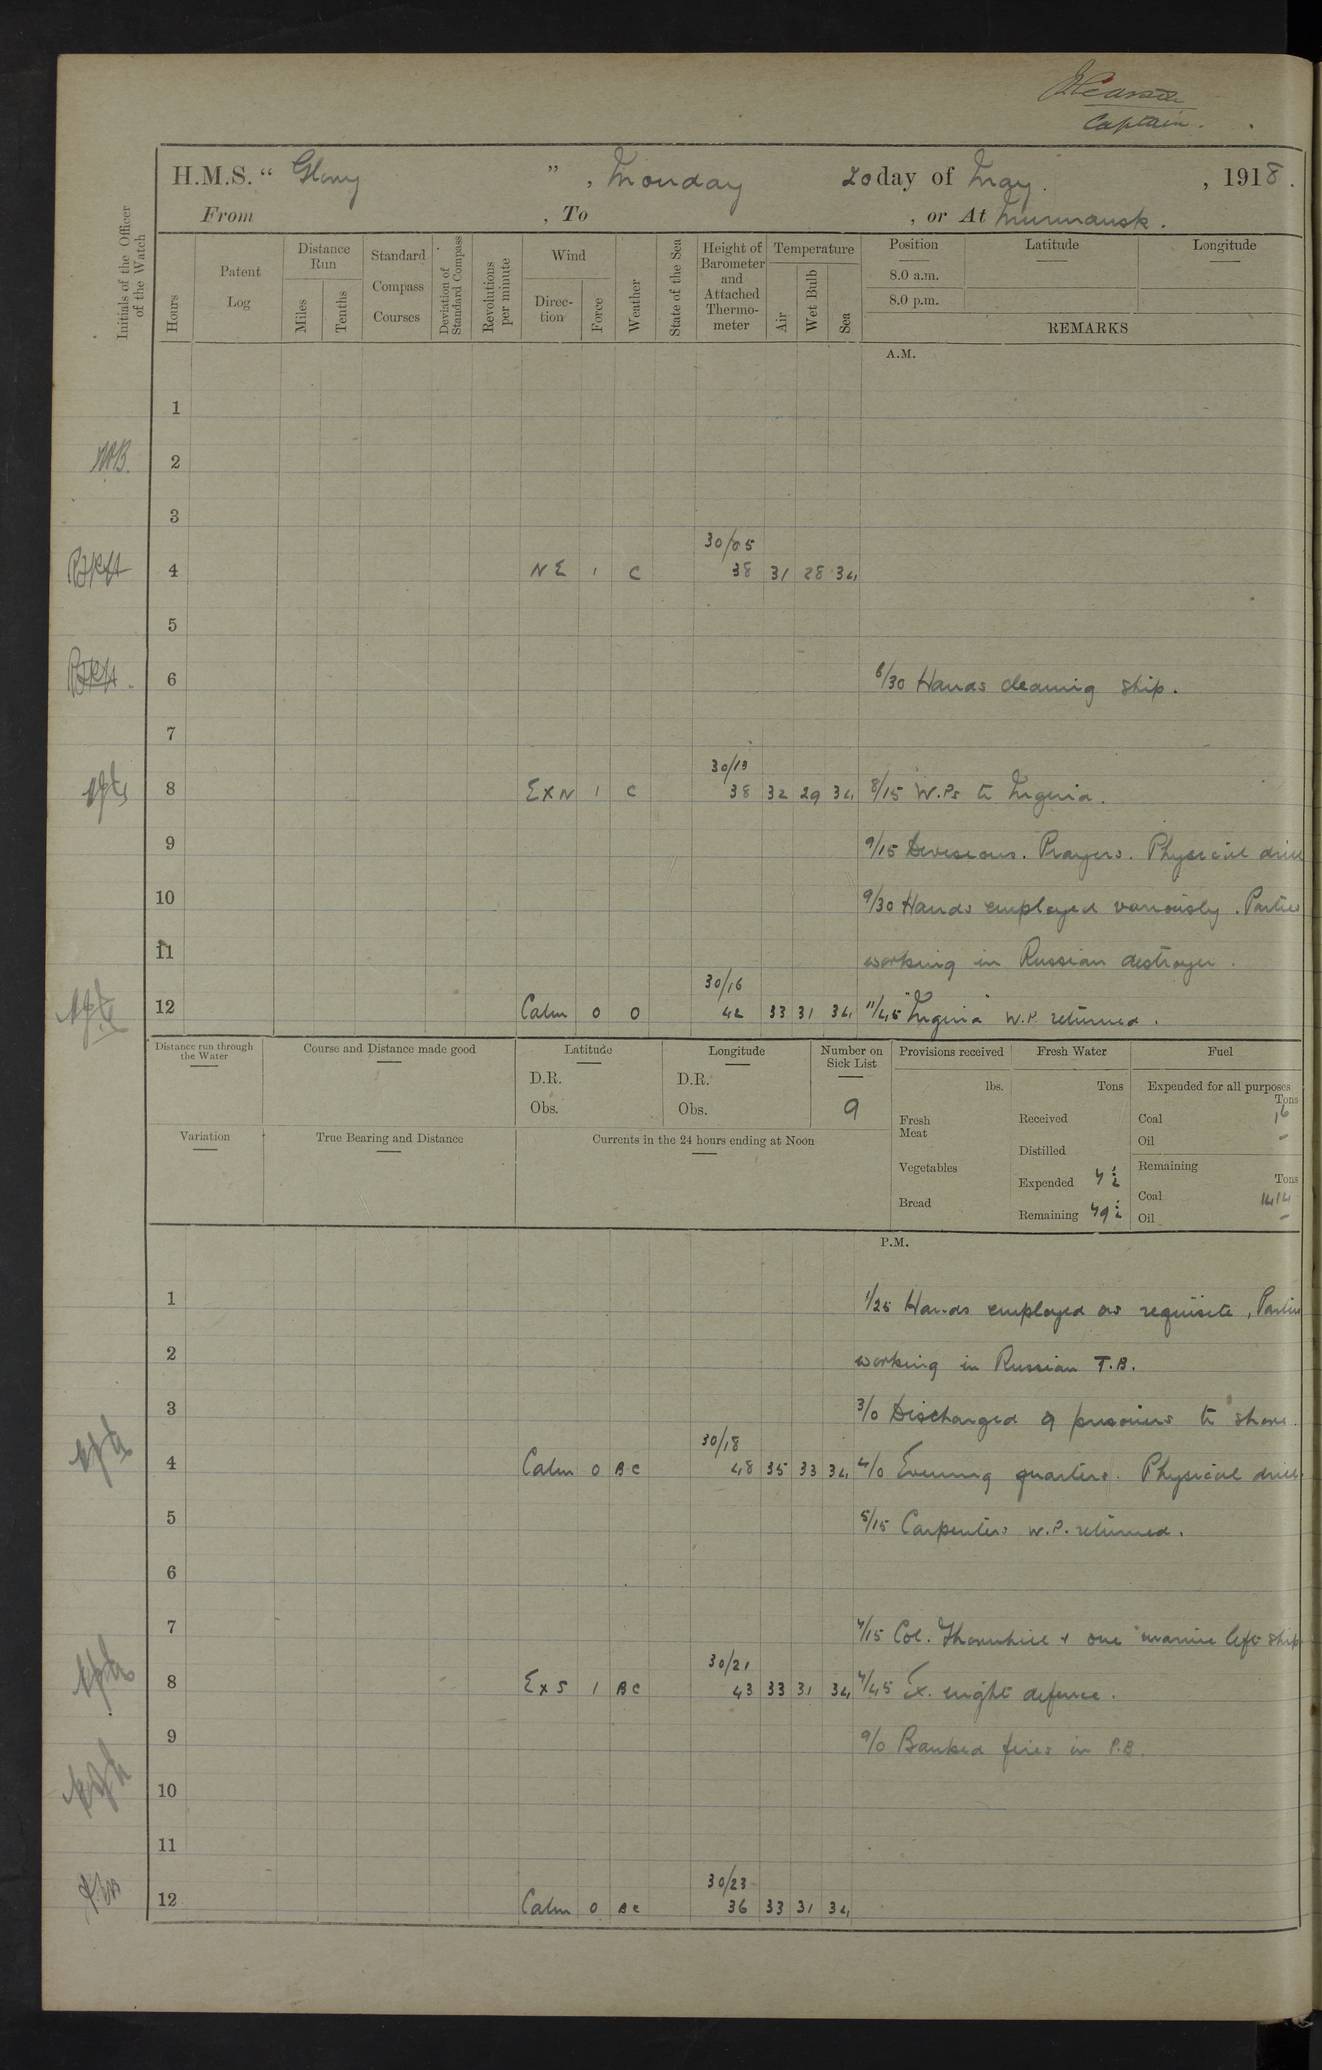 Captain.
H.M.S. “ Glory ” , Monday 20 day of May. , 1918.
From , To , or At Murmansk.
Initials of the Officer of the Watch
Hours
Patent Log
Distance Run
Miles
Tenths
Standard Compass Courses
Deviation of Standard Compass
Revolutions per minute
Wind
Direction
Force
Weather
State of the Sea
Height of Barometer and Attached Thermometer
Temperature
Air
Wet Bulb
Sea
Position Latitude Longitude
8.0 a.m.
8.0 p.m.
REMARKS
A.M.
1
2
3
30/05
4 NE 1 C 38 31 28 34
5
6 6/30 Hands cleaning ship.
7
30/13
8 ExN 1 C 38 32 29 34 8/15 W.Ps to Ingenia.
9 9/15 Divisions. Prayers. Physical drill
10 9/30 Hands employed variously. Parties
11 working in Russian destroyer.
30/16
12 Calm 0 0 42 33 31 34 11/45 "Ingenia" W.P. returned.
Distance run through the Water
Course and Distance made good
Latitude
D.R.
Obs.
Longitude
D.R.
Obs.
Number on Sick List
9
Provisions received
lbs.
Fresh Meat
Vegetables
Bread
Fresh Water
Tons
Received
Distilled
Expended 7 1/2
Remaining 79 1/2
Fuel
Expended for all purposes
Tons
Coal 16
Oil –
Remaining
Tons
Coal 1414
Oil –
Variation
True Bearing and Distance
Currents in the 24 hours ending at Noon
P.M.
1 1/25 Hands employed as requisite, Parties
2 working in Russian T.B.
3 3/0 Discharged 9 prisoners to shore.
30/18
4 Calm 0 BC 48 35 33 34 4/0 Evening quarters. Physical drill.
5 5/15 Carpenters W.P. returned.
6
7 7/15 Col. Thornhill + one marine left ship
30/21
8 ExS 1 BC 43 33 31 34 7/45 Ex. night defence.
9 9/0 Banked fires in P.B.
10
11
30/23
12 Calm 0 BC 36 33 31 34